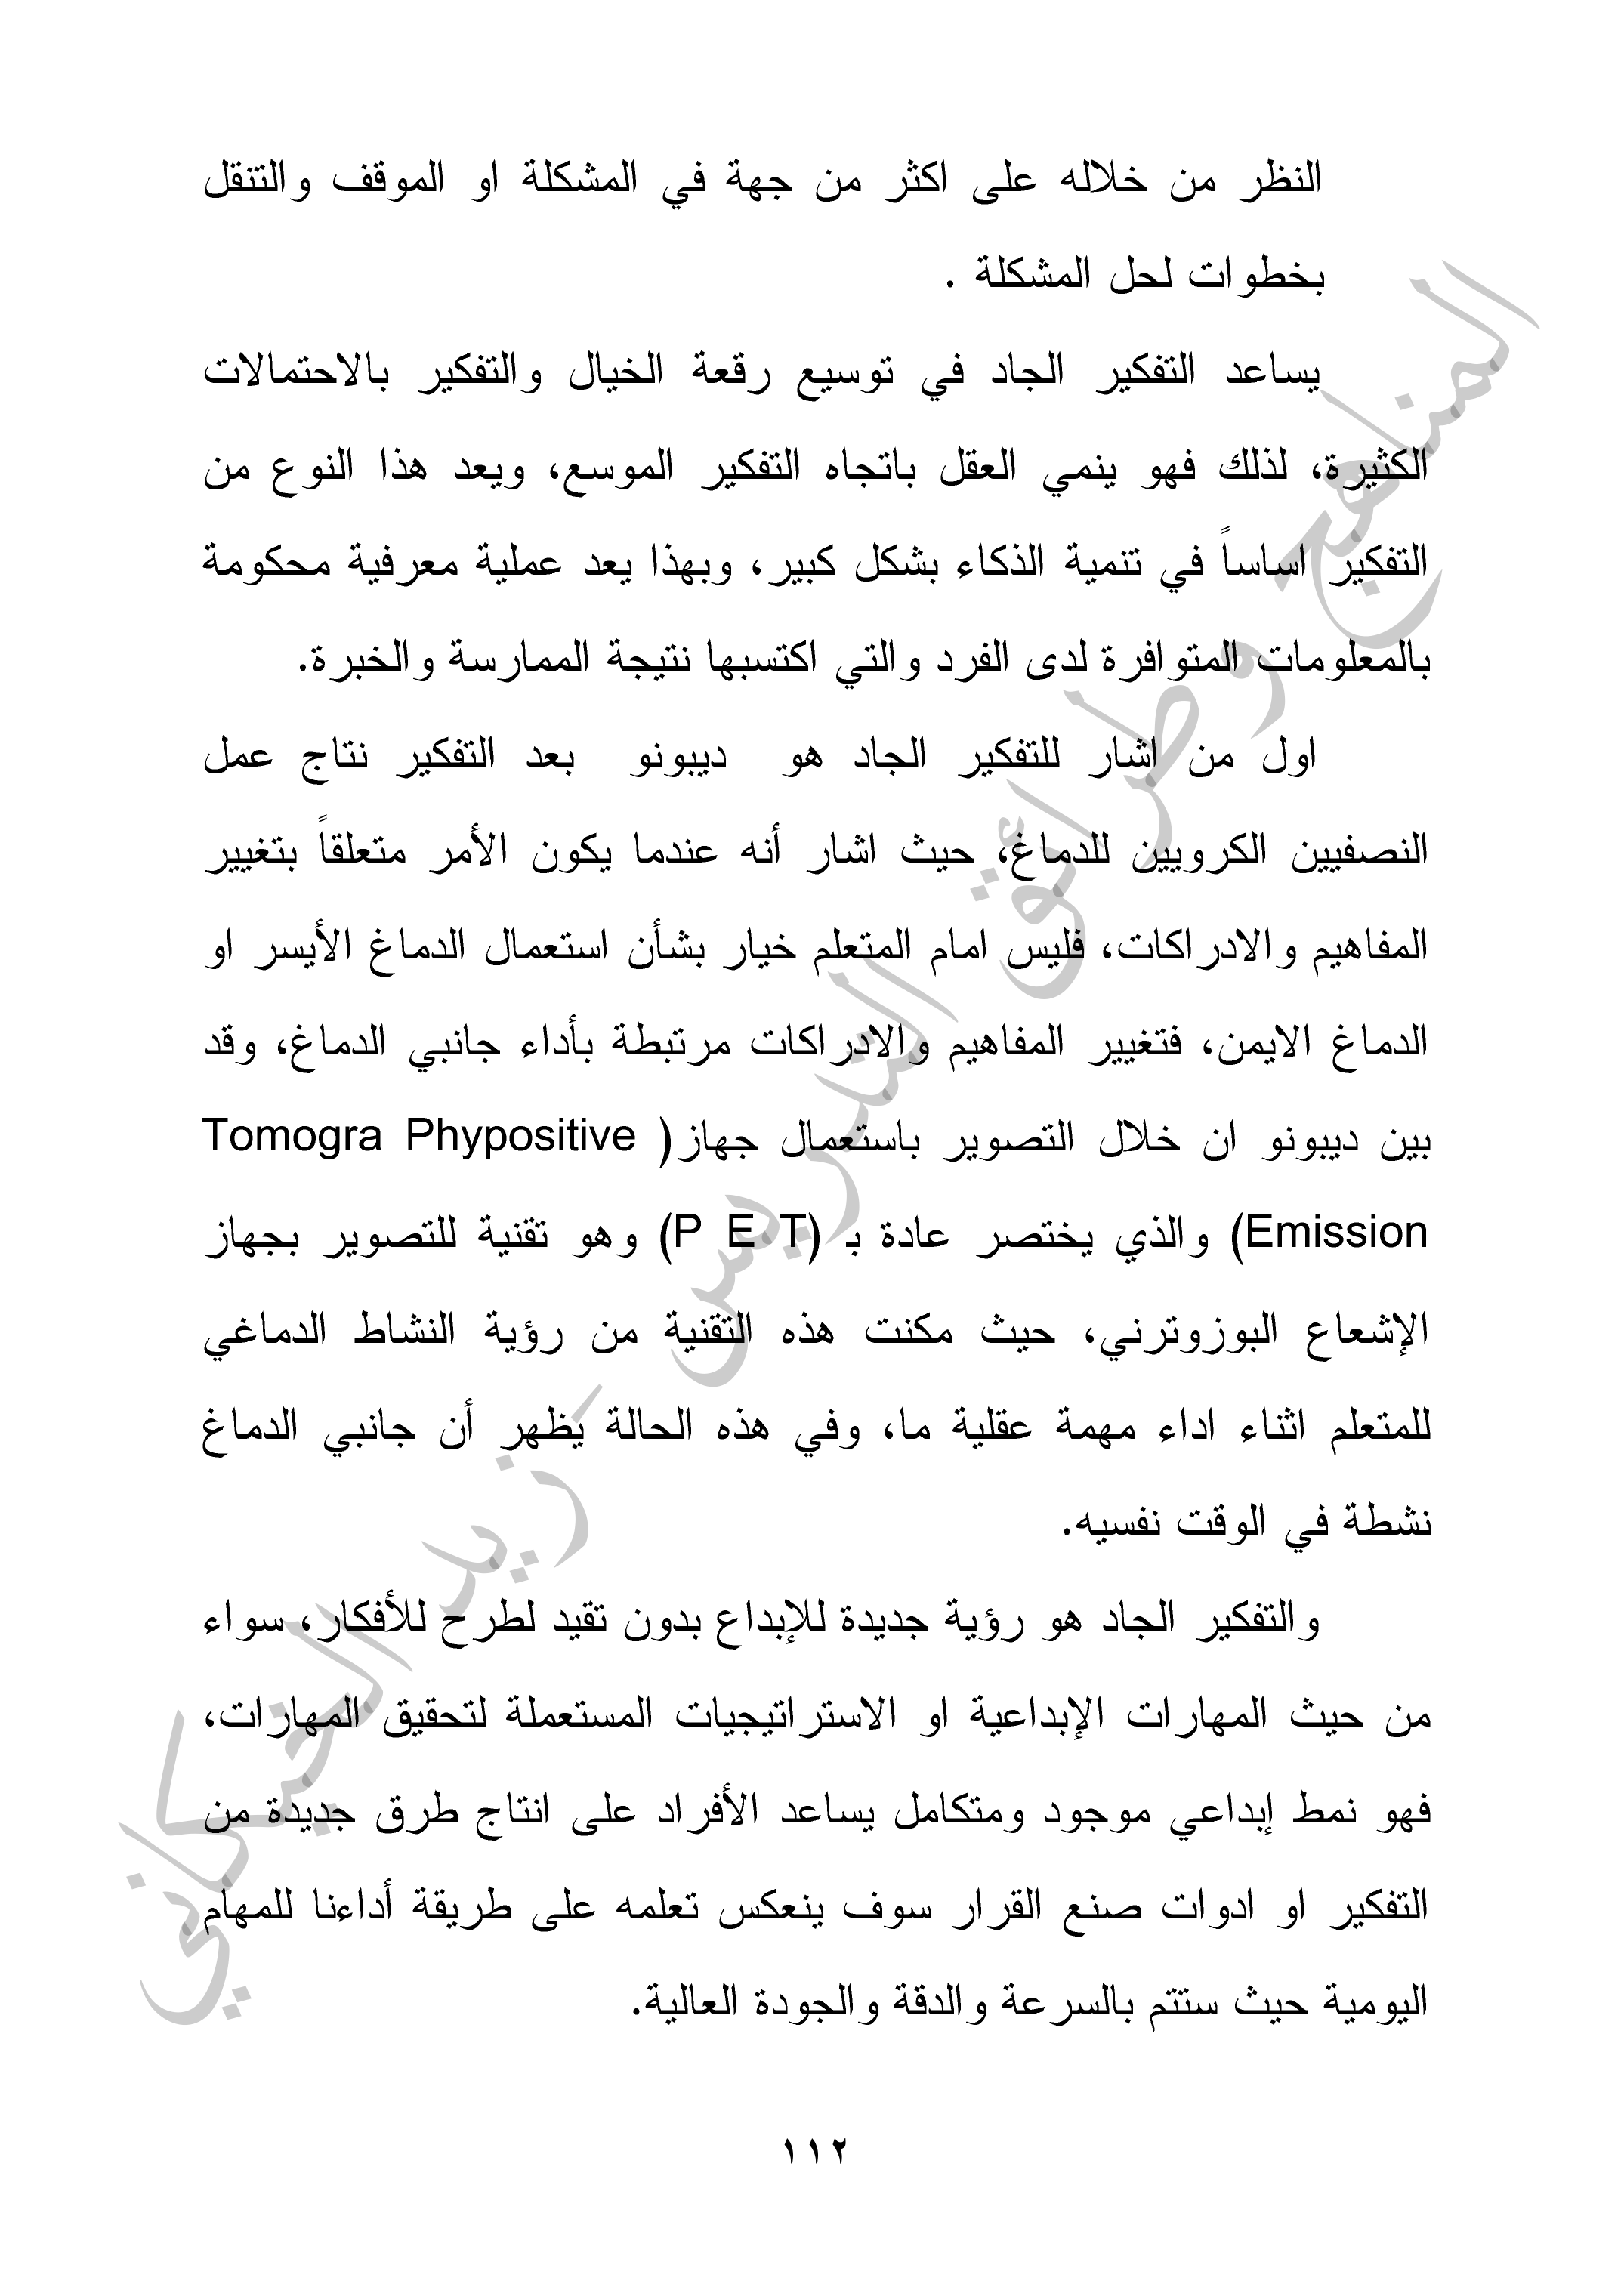 النظر من خلاله على اكثر من جهة في المشكلة او الموقف والتنقل
بخطوات لحل المشكلة .
يساعد التفكير الجاد في توسيع رقعة الخيال والتفكير بالاحتمالات
الكثيرة، لذلك فهو ينمي العقل باتجاه التفكير الموسع، ويعد هذا النوع من
التفكير اساساً في تنمية الذكاء بشكل كبير، وبهذا يعد عملية معرفية محكومة
بالمعلومات المتوافرة لدى الفرد والتي اكتسبها نتيجة الممارسة والخبرة.
اول من اشار للتفكير الجاد هو ديبونو بعد التفكير نتاج عمل
النصفيين الكرويين للدماغ، حيث اشار أنه عندما يكون الأمر متعلقاً بتغيير
المفاهيم والادراكات، فليس امام المتعلم خيار بشأن استعمال الدماغ الأيسر او
الدماغ الايمن، فتغيير المفاهيم والادراكات مرتبطة بأداء جانبي الدماغ، وقد
بين ديبونو ان خلال التصوير باستعمال جهاز( Tomogra Phypositive
Emission) والذي يختصر عادة بـ (P E T) وهو تقنية للتصوير بجهاز
الإشعاع البوزوترني، حيث مكنت هذه التقنية من رؤية النشاط الدماغي
للمتعلم اثناء اداء مهمة عقلية ما، وفي هذه الحالة يظهر أن جانبي الدماغ
نشطة في الوقت نفسيه.
والتفكير الجاد هو رؤية جديدة للإبداع بدون تقيد لطرح للأفكار، سواء
من حيث المهارات الإبداعية او الاستراتيجيات المستعملة لتحقيق المهارات،
فهو نمط إبداعي موجود ومتكامل يساعد الأفراد على انتاج طرق جديدة من
التفكير او ادوات صنع القرار سوف ينعكس تعلمه على طريقة أداءنا للمهام
اليومية حيث ستتم بالسرعة والدقة والجودة العالية.
١١٢
المناهج وطرائق التدريس - زيد الخيكاني